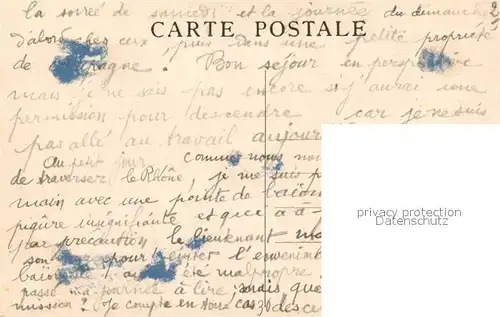 la soirée de samedi et la journée du dimanche
CARTE POSTALE
d'abord chez eux puis dans une petite propriété
de campagne! Bon sejour en perspective
mais je ne sais pas encore si j'aurai une
permission pour descendre car je ne suis
pas allé au travail aujour
Au petit jour comme nous
de traverser le Rhône, je me suis
main avec une pointe de
piqûre insignifiante est que à
par precaution le lieutenant
son pour eviter l'
été malpropre
passé ma journée à lire, mais que
mission? Je compte en tous cas
privacy protection
Datenschutz